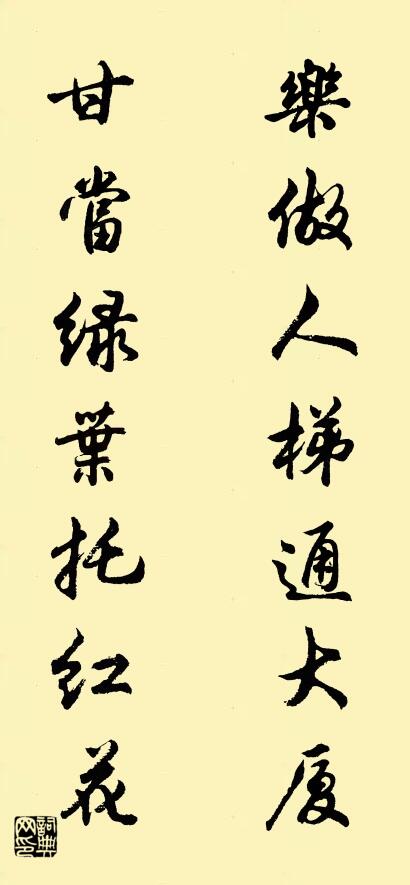 樂做人梯通大厦
甘當緑葉托红花
詞典网印